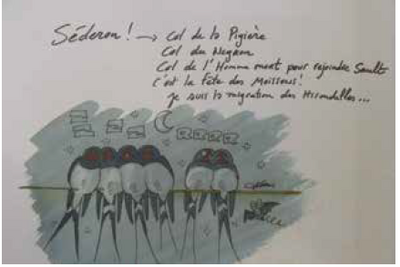 Séderon ! → Col de la Pigière
Col du Negron
Col de l'Homme mort pour rejoindre Sault
C'est la fête des Moissons !
Je suis la migration des Hirondelles...
ZZZZ